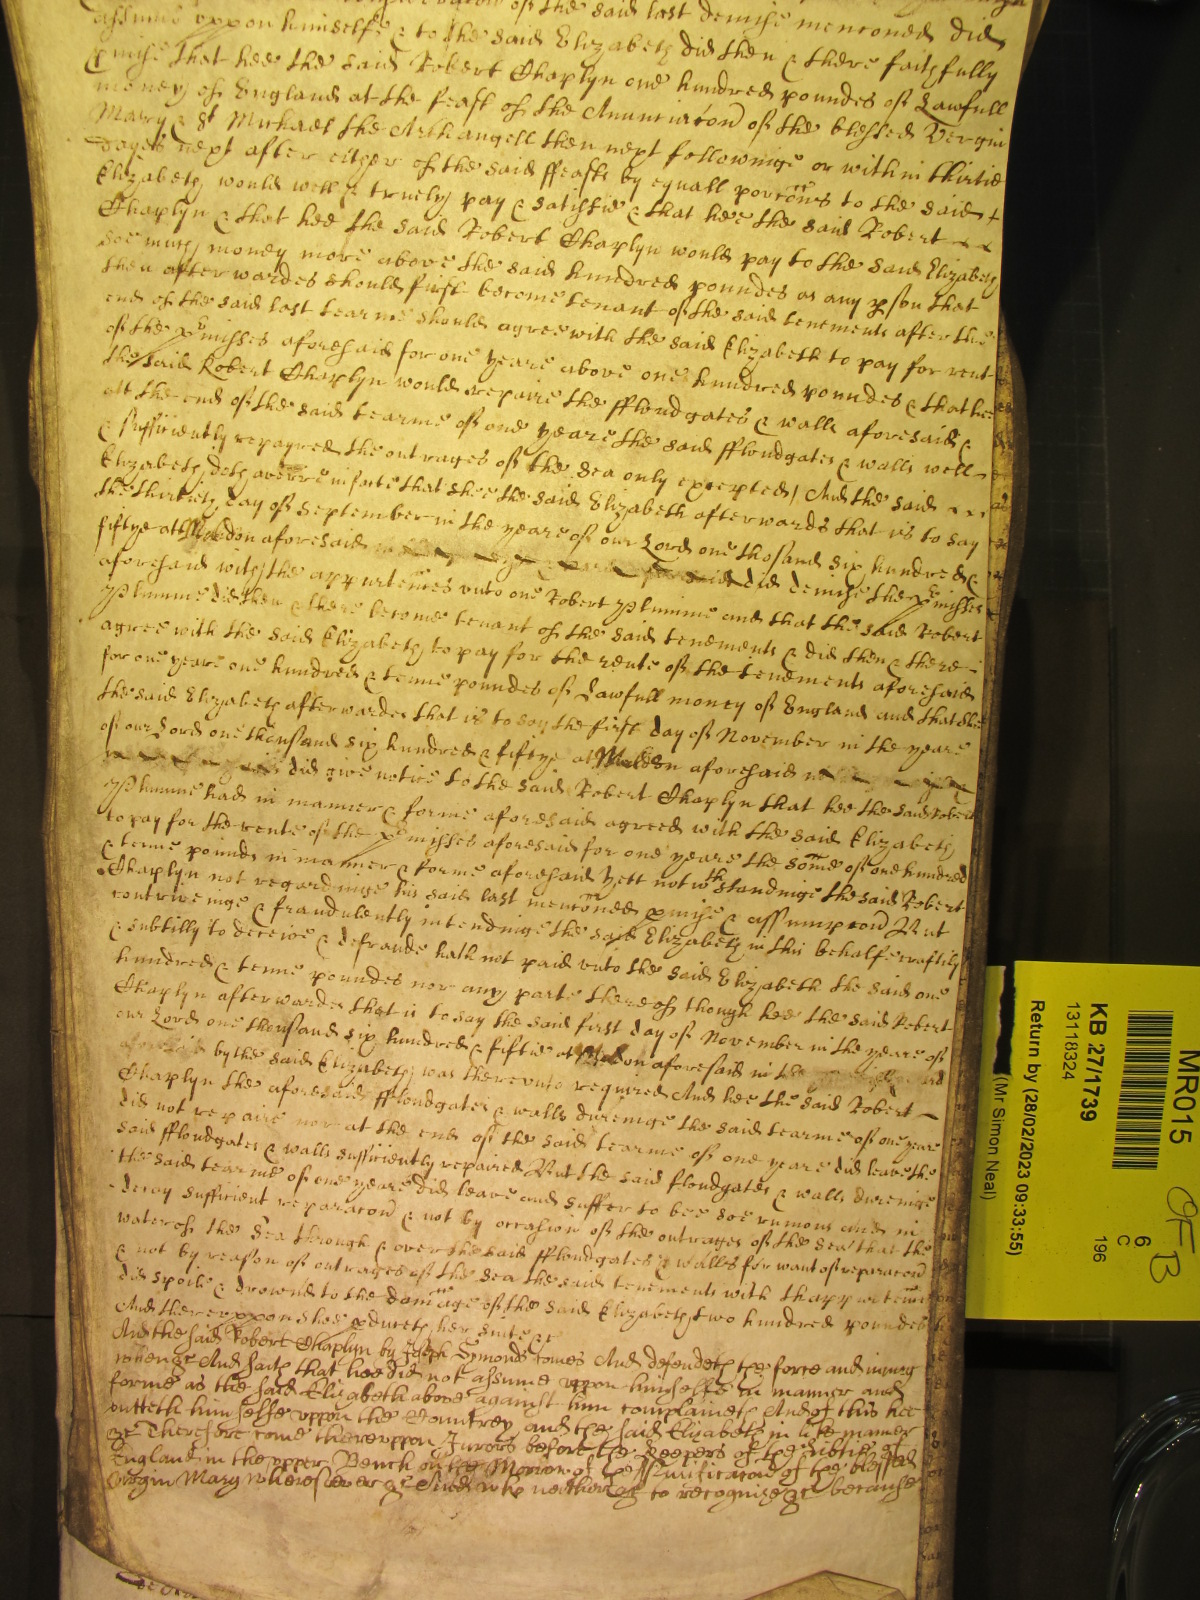 of the said last demise menconed did
assume vppon himselfe & to the said Elizabeth did then & there faithfully
pmise that hee the said Robert Chaplyn one hundred poundes of Lawfull
money of England at the feast of the Anunciacon of the blessed Vergin
Mary & St Michaell the Archangell then next followinge or within thirtie
dayes next after either of the said ffeasts by equall porcons to the said
Elizabeth would well & truely pay & satisfie & that hee the said Robert
Chaplyn & that hee the said Robert Chaplyn would pay to the said Elizabeth
soe much money more above the said hundred poundes as any pson that
then afterwardes should first become tenant of the said tenements after the
end of the said last tearme should agree with the said Elizabeth to pay for rent
of the pmisses aforesaid for one yeare above one hundred poundes & that hee
the said Robert Chaplyn would repaire the ffloudgates & walls aforesaid &
att the end of the said tearme of one yeare the said ffloudgates & walls well
& sufficiently repayred the outrages of the sea only excepted / And the said
Elizabeth doth averre in facte that shee the said Elizabeth afterwards that is to say
the thirtieth day of September in the yeare of our Lord one thosand six hundred &
fiftye att Maldon aforesaid did demise the pmisses
aforesaid with the appurtennces vnto one Robert Plumme and that the said Robert
Plumme did then & there become tenant of the said tenements & did then & there
agree with the said Elizabeth to pay for the rente of the tenements aforesaid
for one yeare one hundred & tenne poundes of Lawfull money of England and that shee
the said Elizabeth afterwardes that is to say the first day of November in the yeare
of our Lord one thousand six hundred & fiftye at Maldon aforesaid
did give notice to the said Robert Chaplyn that hee the said Robert
Plumme had in manner & forme aforesaid agreed with the said Elizabeth
to pay for the rente of the pmisses aforesaid for one yeare the some of one hundred
& tenne pounds in manner & forme aforesaid Yett notwthstandinge the said Robert
Chaplyn not regardinge his said last menconed pmise & assumpcon But
contriveinge & fraudulently intendinge the said Elizabeth in this behalfe craftily
& subtilly to deceive & defraude hath not paid vnto the said Elizabeth the said one
hundred & tenne poundes nor any parte thereof though hee the said Robert
Chaplyn afterwardes that is to say the said first day of November in the yeare of
our Lord one thousand six hundred & fiftie at Maldon aforesaid in
by the said Elizabeth was therevnto required And hee the said Robert
Chaplyn the aforesaid ffloudgates & walls dureinge the said tearme of one yeare
did not repaire nor at the end of the said tearme of one yeare did leave the
said ffloudgates & walls sufficiently repaired But the said floudgates & walls dureinge
the said tearme of one yeare did leave and suffer to bee soe ruinous and in
decay sufficient reparacon & not by occasion of the outrages of the sea that the
water of the Sea through & over the said ffloudgates & walles for want of reparacon
& not by reason of outrages of the sea the said tenements with thappurtennces
did spoile & drowne to the damage of the said Elizabeth two hundred poundes
And therevppon shee pduceth her suite &c
And the said Robert Chaplyn by Joseph Symonds comes And defendeth the force and iniury
whenge And saith that hee did not assume vppon himselfe in manner and
forme as the said Elizabeth above against him complaineth And of this hee
putteth himselfe vppon the Countrey and the said Elizabeth in like manner
&c Therefore come therevppon Jurors before the Keepers of the libtie of
England in the vpper Bench on the Morrow of the Purificacon of the blessed
Virgin Mary wheresoever &c And who neither &c to recognize &c because
MR015
KB 27/1739
13118324
Return by (28/02/2023 09:33:55)
(Mr Simon Neal)
6
C
196